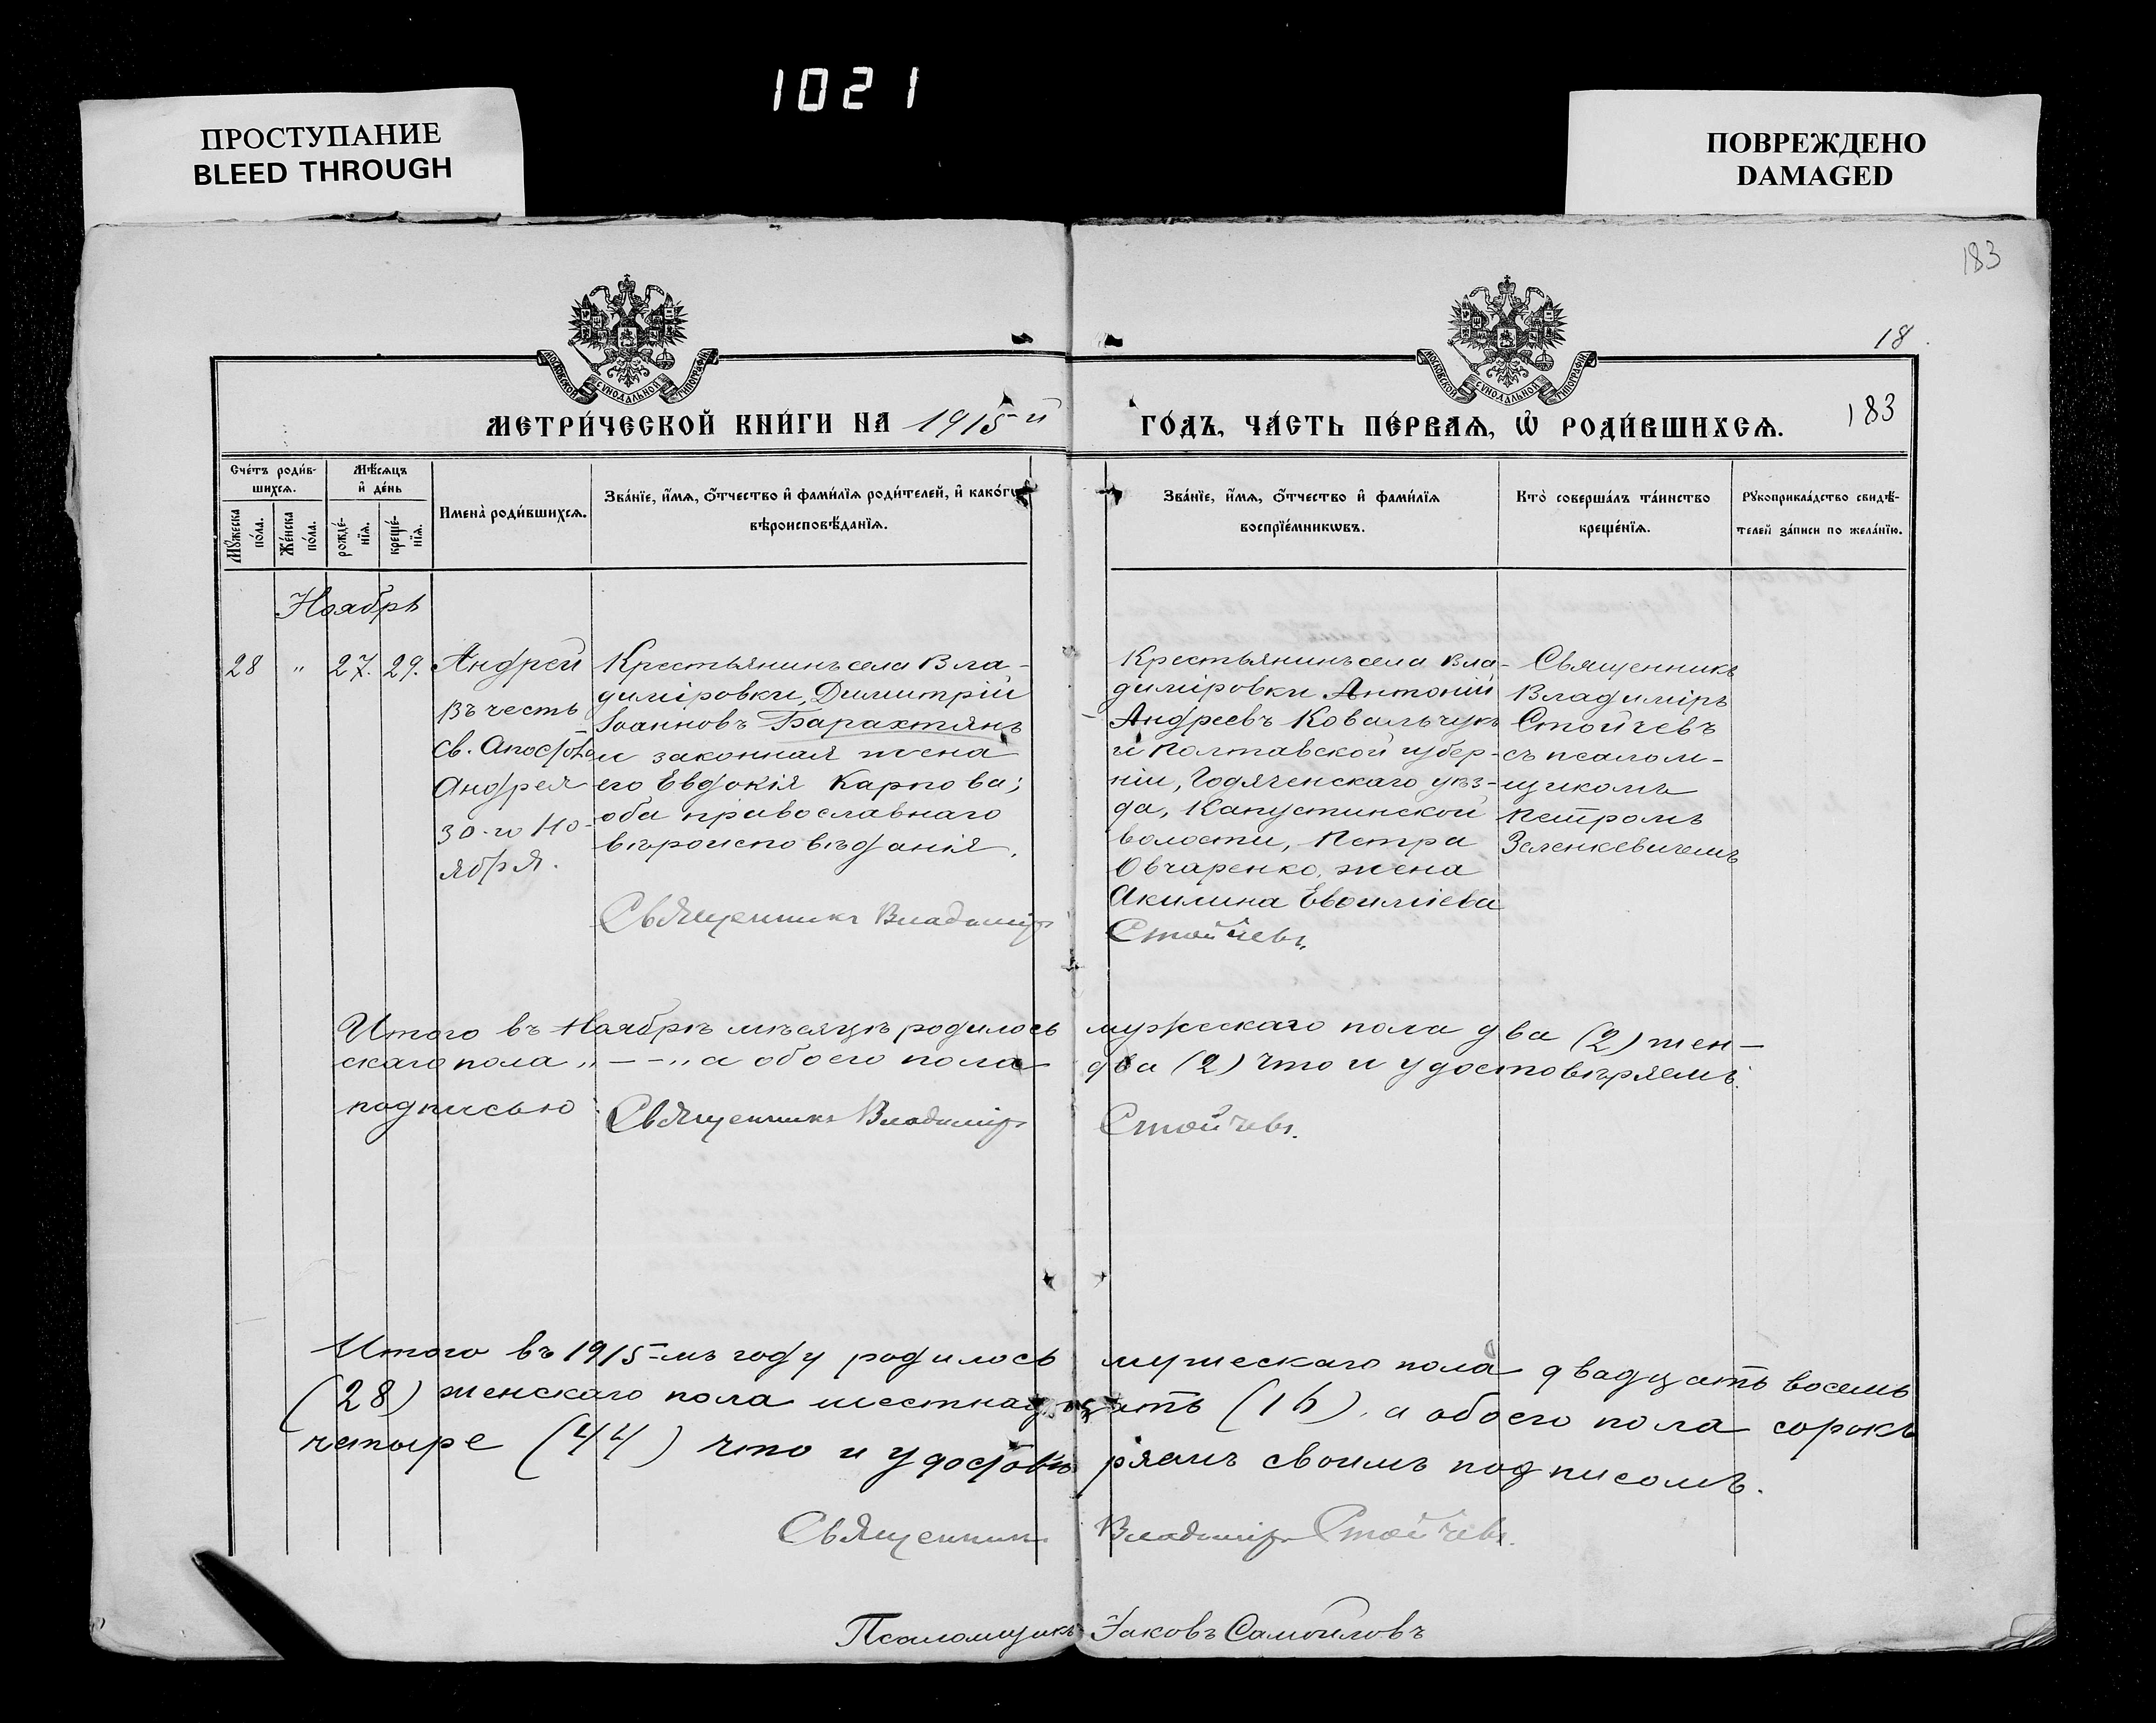 1021
ПРОСТУПАНИЕ
BLEED THROUGH
ПОВРЕЖДЕНО
DAMAGED
183
18
183
МОСКОВСКОЙ СѴНОДАЛЬНОЙ ТИПОГРАФІИ
МОСКОВСКОЙ СѴНОДАЛЬНОЙ ТИПОГРАФІИ
МЕТРИ́ЧЕСКОЙ КНИ́ГИ НА 1915-й
ГО́ДЪ, ЧА́СТЬ ПЕ́РВАѦ, Ѡ҆ РОДИ́ВШИХСѦ.
Сче́тъ роди́в-
шихсѧ.
Мѣ́сѧцъ
и҆ де́нь
Мꙋ́жеска
по́ла.
Же́нска
по́ла.
рожде́-
нїѧ.
креще́-
нїѧ.
Имена̀ роди́вшихсѧ.
Зва́нїе, и҆́мѧ, ѻ҆́тчество и҆ фами́лїѧ роди́телей, и҆ како́гѡ
вѣроисповѣ́данїѧ.
Зва́нїе, и҆́мѧ, ѻ҆́тчество и҆ фами́лїѧ
воспрїе́мникѡвъ.
Кто̀ соверша́лъ та́инство
креще́нїѧ.
Рꙋкоприкла́дство свидѣ́-
телей за́писи по жела́нїю.
Ноябрь
28 " 27. 29.
Андрей
въ честь
св. Апостола
Андрея
30-го Но-
ября.
Крестьянинъ села Вла-
диміровки, Димитрій
Іоанновъ Барахтянъ
и законная жена
его Евдокія Карпова;
оба православнаго
вѣроисповѣданія.
Священникъ Владиміръ
Крестьянинъ села Вла-
диміровки Антоній
Андреевъ Ковальчукъ
и Полтавской губер-
ніи, Годяченскаго уѣз-
да, Капустинской
волости, Петра
Овчаренко, жена
Акилина
Стойчевъ.
Священникъ
Владиміръ
Стойчевъ
съ псалом-
щикомъ
Петромъ
Зеленкевичемъ
Итого въ Ноябрѣ мѣсяцѣ родилось мужескаго пола два (2) жен-
скаго пола „ — — „ а обоего пола два (2) что и удостовѣряемъ
подписью: Священникъ Владиміръ Стойчевъ.
Итого въ 1915-мъ году родилось мужескаго пола двадцать восемь
(28) женскаго пола шестнадцать (16), а обоего пола сорокъ
четыре (44) что и удостовѣряемъ своимъ подписомъ.
Священникъ Владиміръ Стойчевъ.
Псаломщикъ Іаковъ Самойловъ